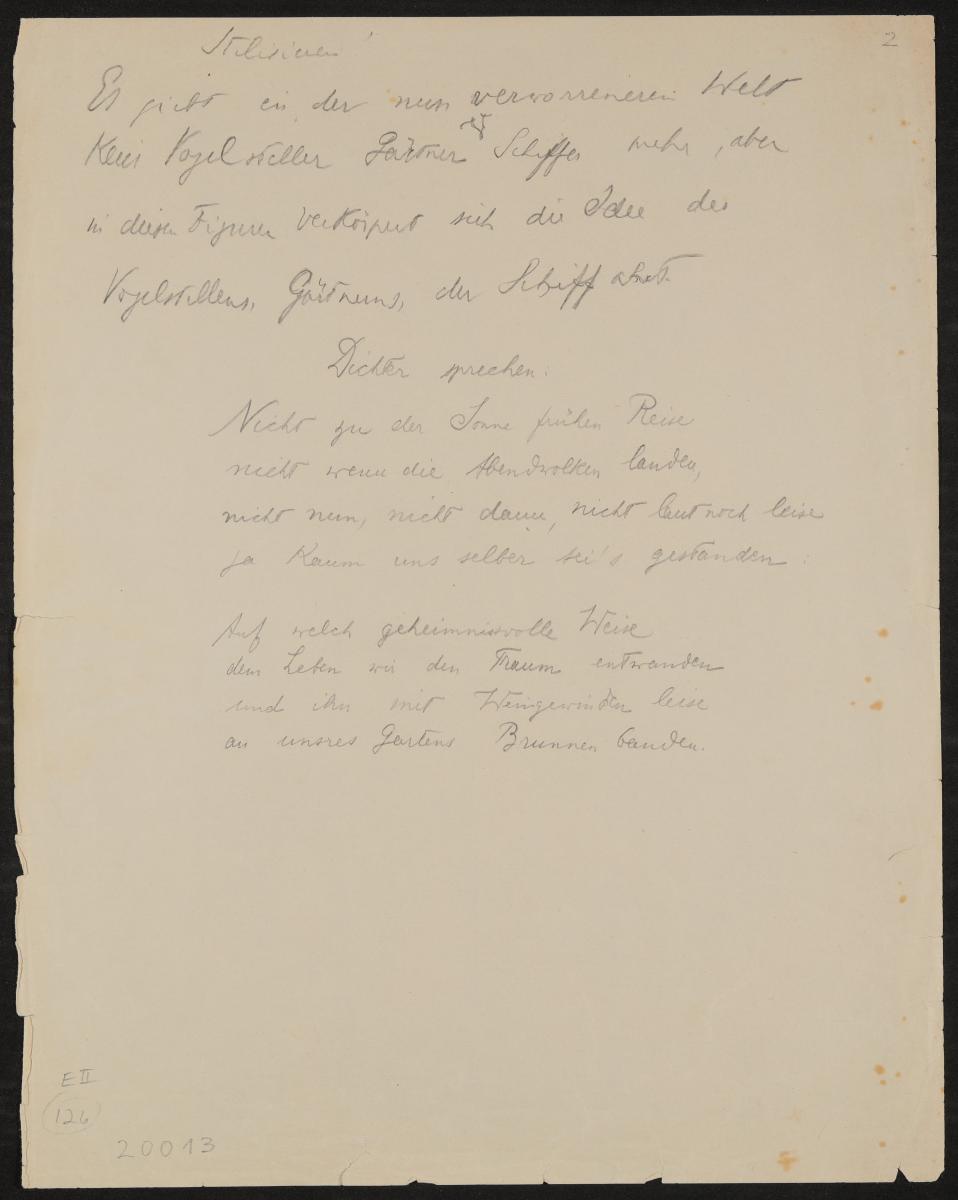 2
Stilisieren!
Es giebt in der nun verworreneren Welt
kein Vogelsteller Gärtner Schiffer mehr, aber
in diesen Figuren verkörpert sich die Idee des
Vogelstellens, Gärtnerns, der Schiffahrt.
Dichter sprechen:
Nicht zu der Sonne frühen Reise
nicht wenn die Abendwolken landen,
nicht nun, nicht dann, nicht laut noch leise
ja kaum uns selber sei's gestanden:
Auf welch geheimnissvolle Weise
dem Leben wir den Traum entwanden
und ihn mit Weingewinden leise
an unsres Gartens Brunnen banden.
E II
126
20013